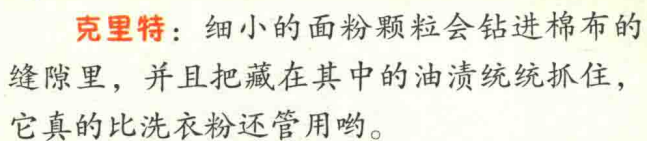 克里特：细小的面粉颗粒会钻进棉布的
缝隙里，并且把藏在其中的油渍统统抓住，
它真的比洗衣粉还管用哟。